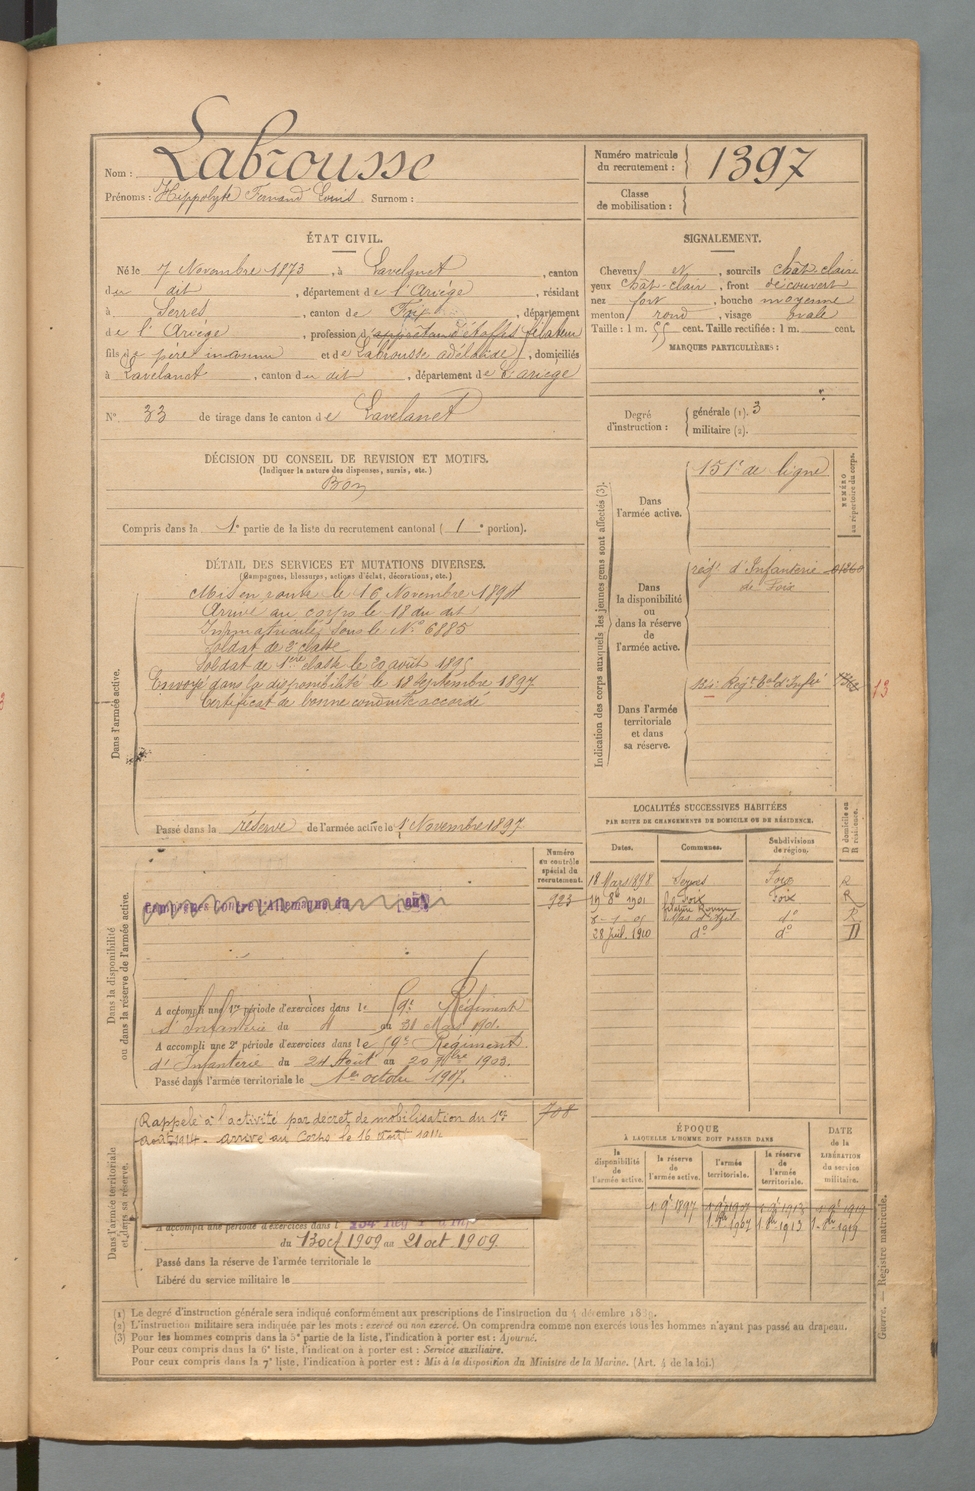 Nom : Labrousse
Prénoms : Hippolyte Fernand Louis. Surnom :
Numéro matricule du recrutement : 1397
Classe de mobilisation :
ÉTAT CIVIL.
Né le 7 Novembre 1873, à Lavelanet, canton
du dit, département de l'Ariége, résidant
à Serres, canton de Foix, département
de l'Ariége, profession d' d'étoffes filateur
fils de père inconnu et de Labrousse adélaïde, domiciliés
à Lavelanet, canton du dit, département de l'Ariege
N° 33 de tirage dans le canton de Lavelanet
DÉCISION DU CONSEIL DE REVISION ET MOTIFS.
(Indiquer la nature des dispenses, sursis, etc.)
Bon
Compris dans la 1e partie de la liste du recrutement cantonal ( 1 e portion).
DÉTAIL DES SERVICES ET MUTATIONS DIVERSES.
(Campagnes, blessures, actions d'éclat, décorations, etc.)
Dans l'armée active.
Mis en route le 16 Novembre 1894
Arrivé au corps le 18 du dit
Immatriculé sous le N° 6885
Soldat de 2e classe
Soldat de 1ère classe le 29 août 1895
Envoyé dans la disponibilité le 18 Septembre 1897
Certificat de bonne conduite accordé
Passé dans la réserve de l'armée active le 1 Novembre 1897
Dans la disponibilité ou dans la réserve de l'armée active.
Numéro au contrôle spécial du recrutement.
contre l'Allemagne du au
123
A accompli une 1re période d'exercices dans le 59e Régiment
d'Infanterie du 4 au 31 Mars 1901.
A accompli une 2e période d'exercices dans le 59e Régiment
d'Infanterie du 24 Août au 20 7bre 1903.
Passé dans l'armée territoriale le 1er octobre 1907.
Dans l'armée territoriale et dans sa réserve.
Rappelé à l'activité par decret de mobilisation du 1er
août 1914. arrivé au Corps le 16 août 1914
708
A accompli une période d'exercices dans l 134e Reg
du 13 oct 1909 au 21 oct 1909.
Passé dans la réserve de l'armée territoriale le
Libéré du service militaire le
SIGNALEMENT.
Cheveux N, sourcils chât-clair
yeux chât-clair, front découvert
nez fort, bouche moyenne
menton rond, visage ovale
Taille : 1 m. 55 cent. Taille rectifiée : 1 m. cent.
MARQUES PARTICULIÈRES :
Degré d'instruction : générale (1). 3
militaire (2).
Indication des corps auxquels les jeunes gens sont affectés (3).
NUMÉRO au répertoire du corps.
Dans l'armée active.
151e de ligne
Dans la disponibilité ou dans la réserve de l'armée active.
régt d'Infanterie
de Foix
Dans l'armée territoriale et dans sa réserve.
Regt d'Infie
13
LOCALITÉS SUCCESSIVES HABITÉES
PAR SUITE DE CHANGEMENTS DE DOMICILE OU DE RÉSIDENCE.
D domicile ou R résidence.
Dates. Communes. Subdivisions de région.
18 Mars 1898 Serres Foix R
19 8bre 1901 Foix Foix R
Mas d'Azil d° R
28 Juil. 1910 d° d° D
ÉPOQUE
À LAQUELLE L'HOMME DOIT PASSER DANS
DATE de la LIBÉRATION du service militaire.
la disponibilité de l'armée active. la réserve de l'armée active. l'armée territoriale. la réserve de l'armée territoriale.
1 9bre 1897 1 9bre 1907 1 9bre 1913 1 9bre 1919
1. 8bre 1907 1. 8bre 1913 1. 8bre 1919
Guerre. — Registre matricule.
(1) Le degré d'instruction générale sera indiqué conformément aux prescriptions de l'instruction du 4 décembre 1889.
(2) L'instruction militaire sera indiquée par les mots : exercé ou non exercé. On comprendra comme non exercés tous les hommes n'ayant pas passé au drapeau.
(3) Pour les hommes compris dans la 5e partie de la liste, l'indication à porter est : Ajourné.
Pour ceux compris dans la 6e liste, l'indication à porter est : Service auxiliaire.
Pour ceux compris dans la 7e liste, l'indication à porter est : Mis à la disposition du Ministre de la Marine. (Art. 4 de la loi.)